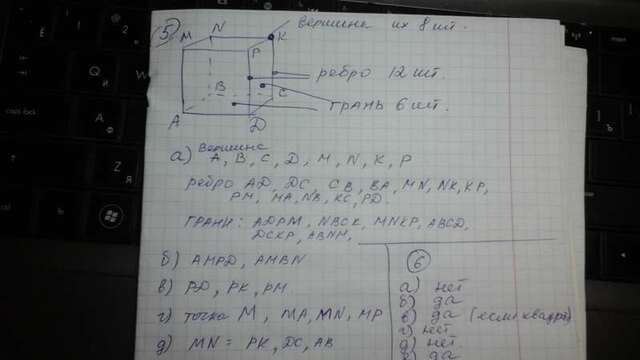 5) M N K вершина их 8 шт.
P
ребро 12 шт.
B C грань 6 шт.
A D
а) вершина A, B, C, D, M, N, K, P
ребро AD, DC, CB, BA, MN, NK, KP,
PM, MA, NB, KC, PD.
грани: ADPM, NBCK, MNKP, ABCD,
DCKP, ABNM,
б) AMPD, AMBN
в) PD, PK, PM
г) точка M, MA, MN, MP
д) MN = PK, DC, AB
6
а) нет
б) да
в) да (если квадрат)
г) нет
д) нет.
да